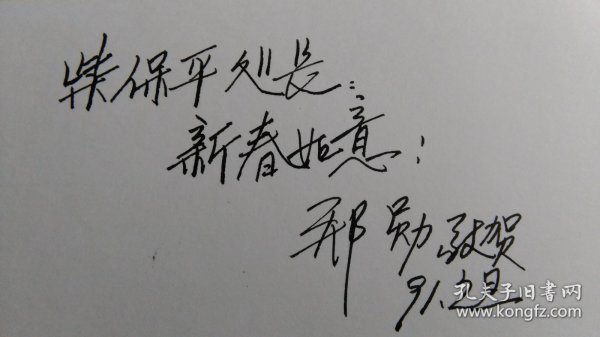 柴保平处长：
新春如意！
邢勋敬贺
91.元旦
孔夫子旧书网
www.kongfz.com